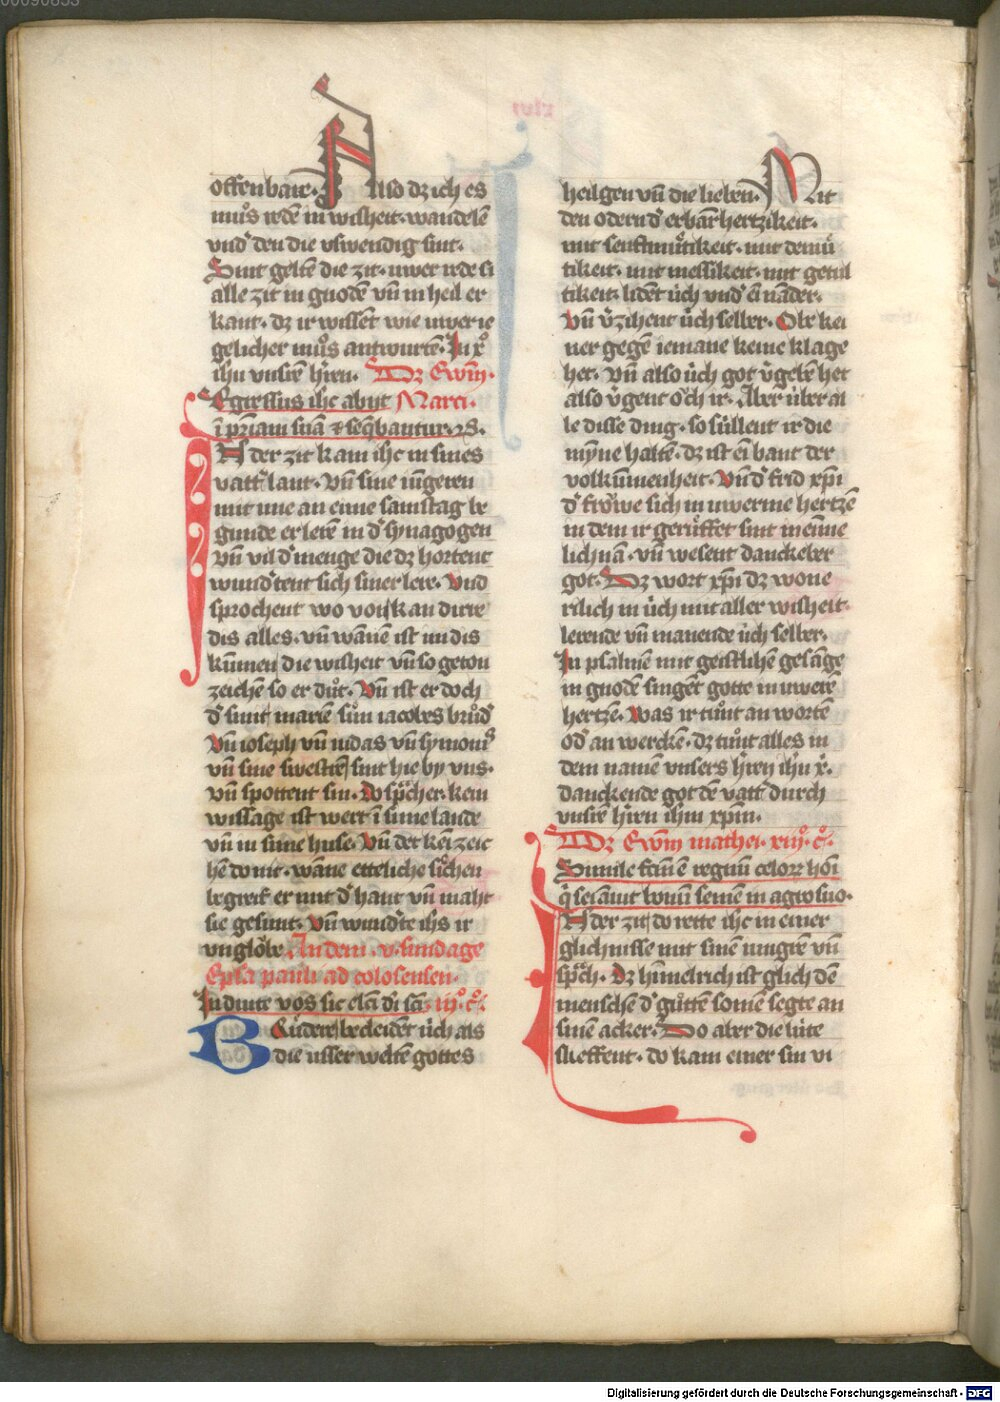 offenbare. Also dz ich es
můs reden in wisheit. wandelē
vnd' den die vswendig sint.
Sint geltē die zit. uwer rede si
alle zit in gnodē vn̄ in heil er
kant. dz ir wissēt wie uwer ie
gelicher můs antwurtē. In xp̄o
ih̄u vnsrē h̄ren. Dz Ewm̄.
Egressus ihc abijt Marci.
ī pr̄iam suā & seq̄bantur. rs.
In der zit kam ihc in sines
vatt's lant. Vn̄ sine iūgeren
mit ime an eime samstag be
gunde er lerē in d' synagogen
Vn̄ vil d' menge die dz hortent
wund'tent sich siner lere. Vnd
sprochent wo von kan dirre
dis alles. vn̄ wānē ist im dis
kūmen die wisheit vn̄ so geton
zeichē so er důt. Vn̄ ist er doch
d' smit mariē sůn iacobes brůd'
Vn̄ ioseph vn̄ iudas vn̄ symonis
vn̄ sine swestrē sint hie by vns.
vn̄ spottent sin. Do sp̊cher. kein
wissage ist wert ī sime lande
vn̄ in sime huse. Vn̄ det kein zeic
hē do mit. wāne etteliche siechen
begreif er mit d' hant vn̄ maht
sie gesunt. Vn̄ wund'te ihs ir
vnglöbe. An dem .v. sundage
Epl'a pauli ad colosensen.
Induite vos sic el'ci d'i sc̄i. iij°. c°.
Bruͤdere becleident uͤch als
die usser weltē gottes
heilgen vn̄ die lieben. Mit
den odern d' erbarm̄hertzikeit.
mit senftmuͤtikeit. mit demuͤ
tikeit. mit messikeit. mit getul
tikeit. lidēt uͤch vnd' ein nāder.
Vn̄ v'zihent uͤch selber. Obe kei
ner gegē iemane keine klage
het. Vn̄ also uͤch got v'gebē het
also v'gent oͤch ir. Aber uͤber al
le disse ding. so suͤllent ir die
myne haltē. dz ist ein bant der
volkūmenheit. Vn̄ d' frid xp̄i
d' froͤwe sich in uwerme hertzē
in dem ir geruͤffet sint in eime
lichnā. vn̄ wesent danckeber
got. Dz wort xp̄i dz wone
rilich in uͤch mit aller wisheit.
lerende vn̄ manende uͤch selber.
In psalmē mit geistlichē gesāge
in gnodē singēt gotte in uwerē
hertzē. Was ir tuͦnt an wortē
od' an werckē. dz tuͦnt alles in
dem namē vnsers h̄ren ih̄u x̄.
danckende got dē vatt' durch
vnsrē h̄ren ih̄m xp̄m.
Dz Ewm̄ mathei. xiij°. c°.
Simile fc̄m ē regnū celorz hōi
q̄ seīauit bonū semē in agro suo.
In der zit do rette ihc in einer
glichnisse mit sinē iungrē vn̄
sp̊ch. Dz himelrich ist glich dē
menschē d' guͤttē somē segte an
sinē acker. Do aber die luͤte
slieffent. do kam einer sin vi
Digitalisierung gefördert durch die Deutsche Forschungsgemeinschaft - DFG